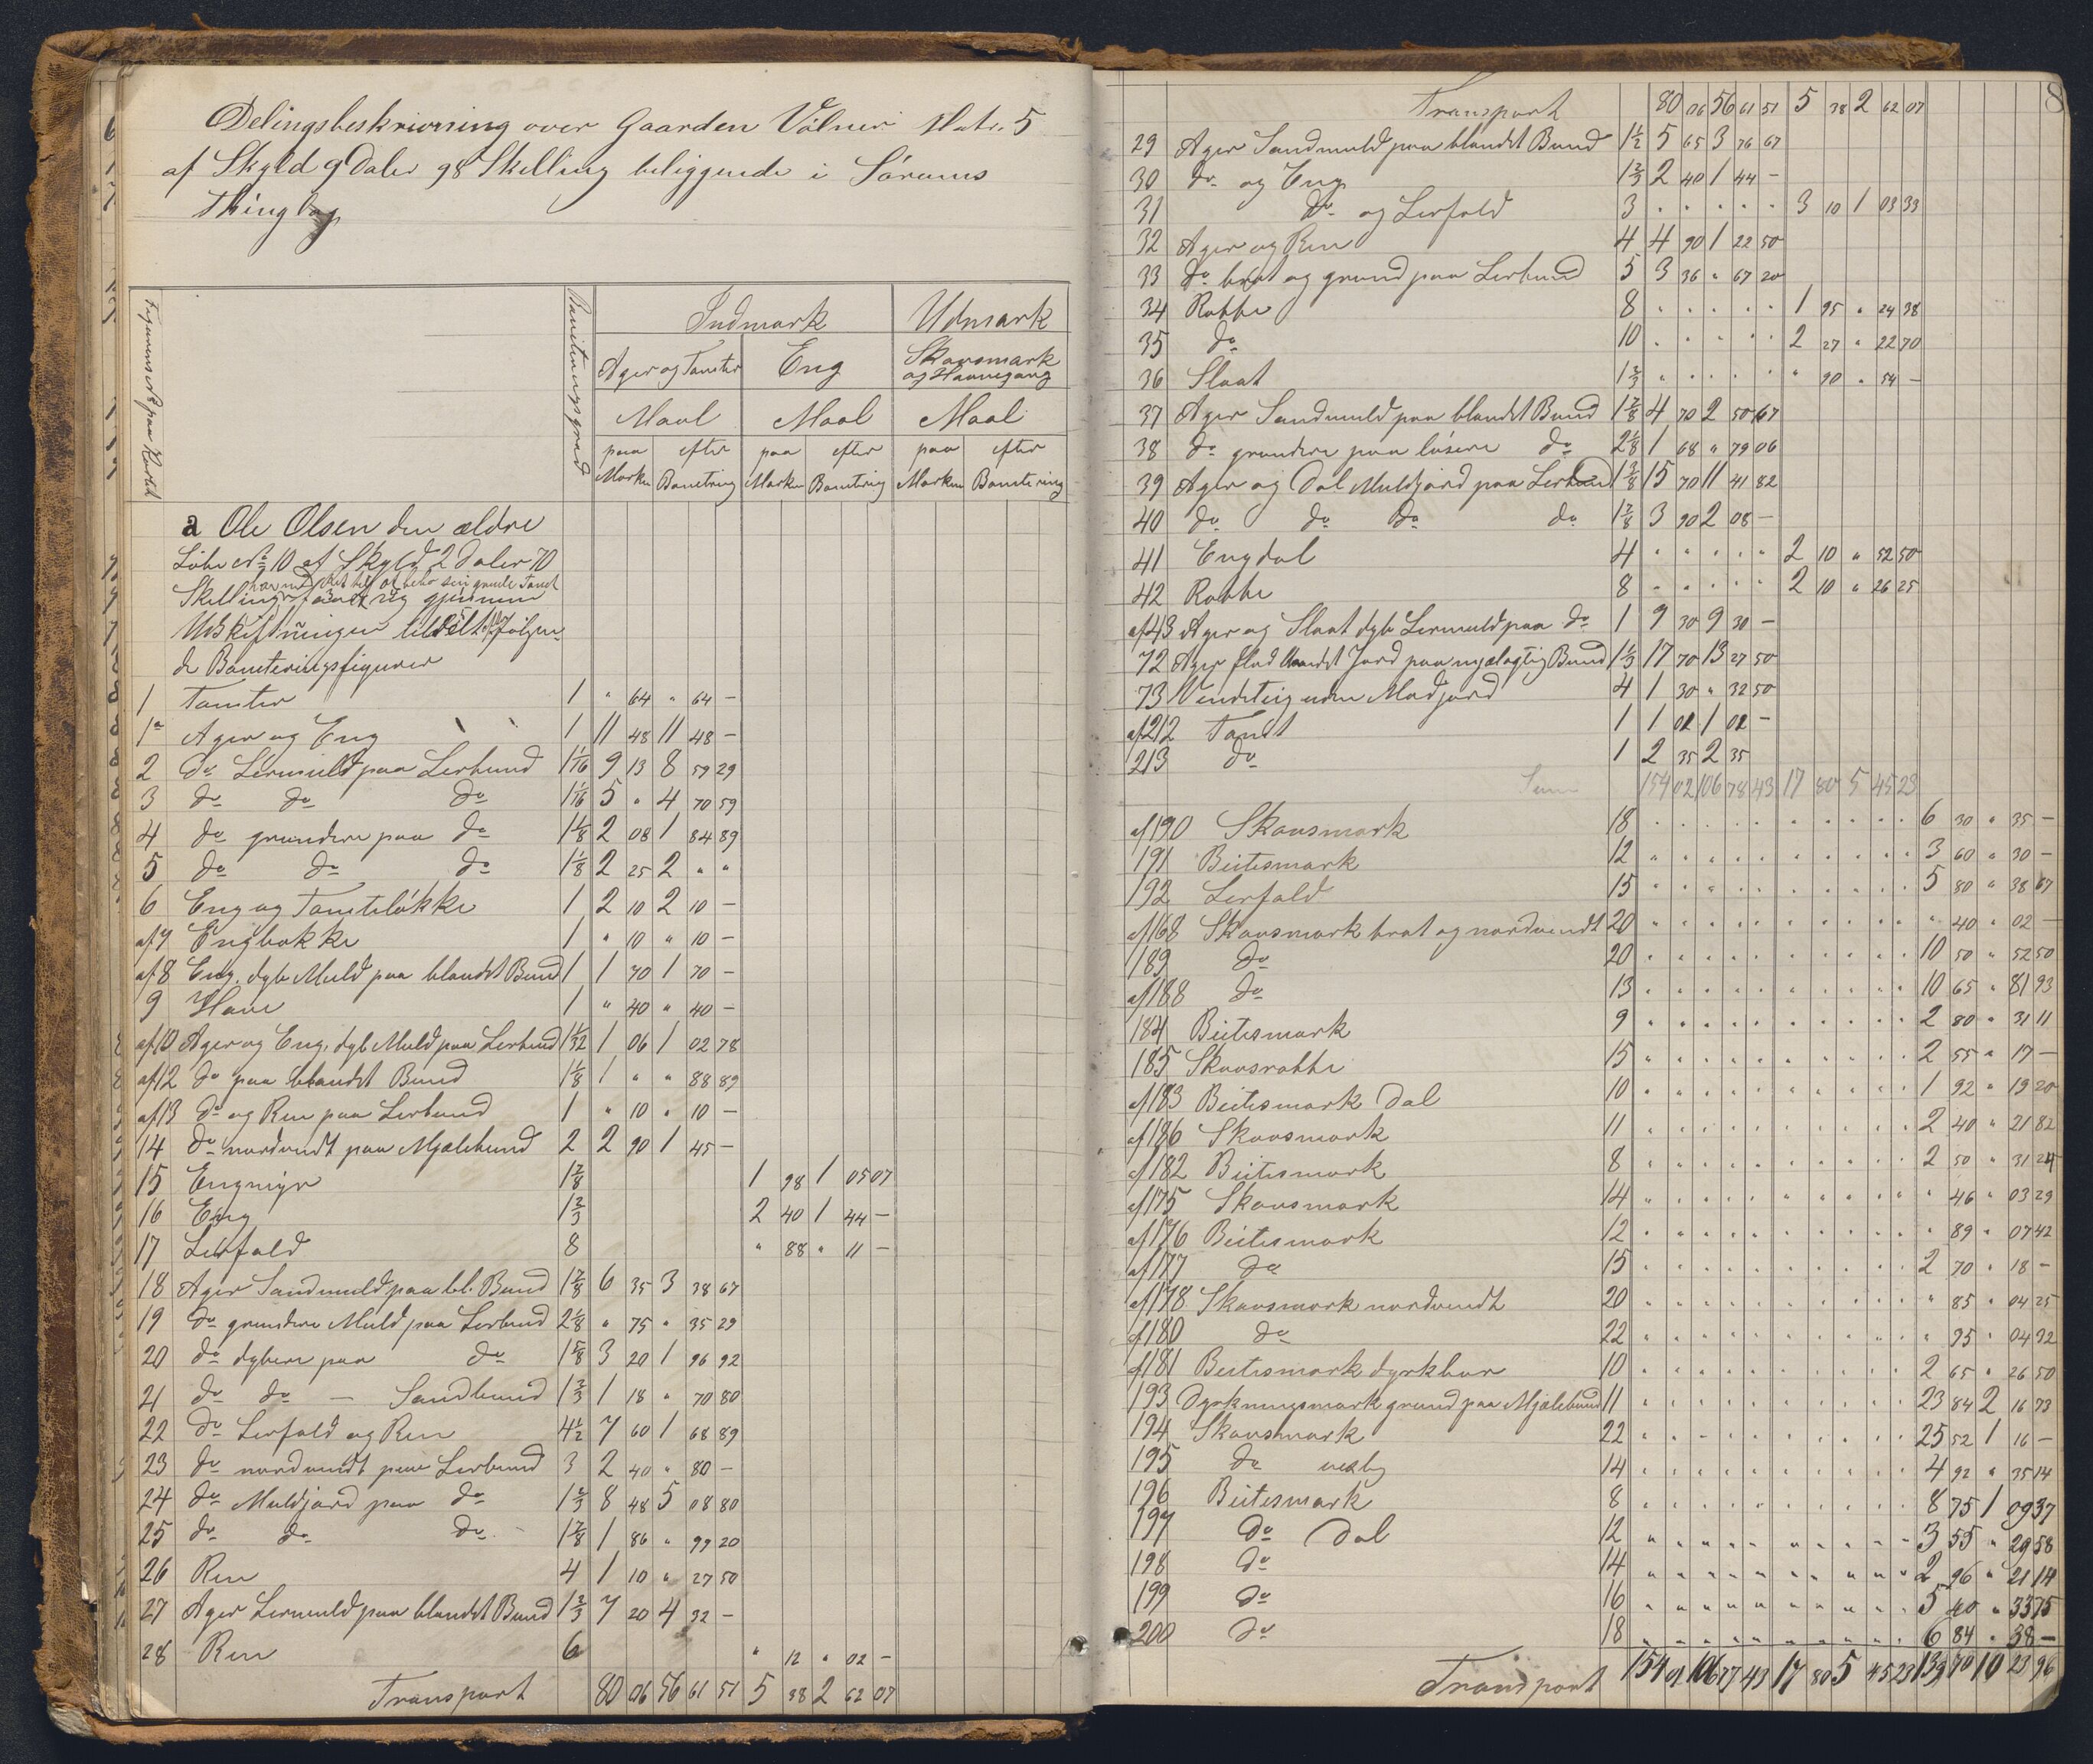 Delingsbeskrivning over Gaarden Vólner Matr. 5
af Skyld 9 Daler 98 Skelling beliggende i Sörums
Thinglag
Figurens No paa Kartet
Boniteringsgrad
Indmark Udmark
Ager og Tomter Eng Skovsmark og Havnegang
Maal Maal Maal
paa Marken efter Bonitring paa Marken efter Bonitring paa Marken efter Bonitering
a Ole Olsen den ældre
Löbe No 10 af Skyld 2 Daler 70
Skelling
Udskiftningen tildelt følgen-
de Boniteringsfigurer
1 Tomter 1 " 64 " 64 –
1a Ager og Eng 1 11 48 11 48 –
2 do Lermuld paa Lerbund 1 1/16 9 13 8 59 29
3 do do do 1 1/16 5 " 4 70 59
4 do grundere paa do 1 1/8 2 08 1 84 89
5 do do do 1 1/8 2 25 2 " "
6 Eng og Tomteløkke 1 2 10 2 10 –
af 7 Engbakke 1 " 10 " 10 –
af 8 Eng, dyb Muld paa blandet Bund 1 1 70 1 70 –
9 Have 1 " 40 " 40 –
af 10 Ager og Eng, dyb Muld paa Lerbund 1 1/32 1 06 1 02 78
af 12 do paa blandet Bund 1 1/8 1 " " 88 89
af 13 do og Ren paa Lerbund 1 " 10 " 10 –
14 do nordvendt paa Mjælebund 2 2 90 1 45 –
15 Engmyr 1 7/8 1 98 1 05 07
16 Eng 1 2/3 2 40 1 44 –
17 Lerfald 8 " 88 " 11 –
18 Ager Sandmuld paa bl. Bund 1 7/8 6 35 3 38 67
19 do grundere Muld paa Lerbund 2 1/8 " 75 " 35 29
20 do dybere paa do 1 5/8 3 20 1 96 92
21 do do – Sandbund 1 2/3 1 18 " 70 80
22 do Lerfald og Ren 4 1/2 7 60 1 68 89
23 do nordvendt paa Lerbund 3 2 40 " 80 –
24 do Muldjord paa do 1 2/3 8 48 5 08 80
25 do do do 1 7/8 1 86 " 99 20
26 Ren 4 1 10 " 27 50
27 Ager Lermuld paa blandet Bund 1 2/3 7 20 4 32 –
28 Ren 6 " 12 " 02 –
Transport 80 06 56 61 51 5 38 2 62 07
8
Transport 80 06 56 61 51 5 38 2 62 07
29 Ager Sandmuld paa blandet Bund 1 1/2 5 65 3 76 67
30 do og Eng 1 2/3 2 40 1 44 –
31 do og Lerfald 3 " " " " " 3 10 1 03 33
32 Ager og Ren 4 4 90 1 22 50
33 do brat og grund paa Lerbund 5 3 36 " 67 20
34 Rabbe 8 " " " " " 1 95 " 24 38
35 do 10 " " " " " 2 27 " 22 70
36 Slaat 1 2/3 " " " " " " 90 " 54 –
37 Ager Sandmuld paa blandet Bund 1 7/8 4 70 2 50 67
38 do grundere paa lösere do 2 1/8 1 68 " 79 06
39 Ager og Dal Muldjord paa Lerbund 1 3/8 15 70 11 41 82
40 do do do do 1 7/8 3 90 2 08 –
41 Engdal 4 " " " " " 2 10 " 52 50
42 Rabbe 8 " " " " " 2 10 " 26 25
af 43 Ager og Slaat dyb Lermuld paa do 1 9 30 9 30 –
72 Ager flad blandet Jord paa mjælagtig Bund 1 1/3 17 70 13 27 50
73 Vendeteig uden Madjord 4 1 30 " 32 50
af 212 Tomt 1 1 02 1 02 –
213 do 1 2 35 2 35
Sum 154 02 106 78 43 17 80 5 45 23
af 190 Skovsmark 18 " " " " " " " " " " 6 30 " 35 –
191 Beitesmark 12 " " " " " " " " " " 3 60 " 30 –
192 Lerfald 15 " " " " " " " " " " 5 80 " 38 67
af 168 Skovsmark brat og nordvendt 20 " " " " " " " " " " " 40 " 02 –
189 do 20 " " " " " " " " " " 10 50 " 52 50
af 188 do 13 " " " " " " " " " " 10 65 " 81 93
184 Beitesmark 9 " " " " " " " " " " 2 80 " 31 11
185 Skovsrabbe 15 " " " " " " " " " " 2 55 " 17 –
af 183 Beitesmark Dal 10 " " " " " " " " " " 1 92 " 19 20
af 186 Skovsmark 11 " " " " " " " " " " 2 40 " 21 82
af 182 Beitesmark 8 " " " " " " " " " " 2 50 " 31 24
af 175 Skovsmark 14 " " " " " " " " " " " 46 " 03 29
af 176 Beitesmark 12 " " " " " " " " " " " 89 " 07 42
af 177 do 15 " " " " " " " " " " 2 70 " 18 –
af 178 Skovsmark nordvendt 20 " " " " " " " " " " " 85 " 04 25
af 180 do 22 " " " " " " " " " " " 95 " 04 32
af 181 Beitesmark dyrkbar 10 " " " " " " " " " " 2 65 " 26 50
193 Dyrkningsmark grund paa Mjælebund 11 " " " " " " " " " " 23 84 2 16 73
194 Skovsmark 22 " " " " " " " " " " 25 52 1 16 –
195 do 14 " " " " " " " " " " 4 92 " 35 14
196 Beitesmark 8 " " " " " " " " " " 8 75 1 09 37
197 do Dal 12 " " " " " " " " " " 3 55 " 29 58
198 do 14 " " " " " " " " " " 2 96 " 21 14
199 do 16 " " " " " " " " " " 5 40 " 33 75
200 do 18 " " " " " " " " " " 6 84 " 38 –
Transport 154 01 106 77 43 17 80 5 45 23 139 70 10 23 96